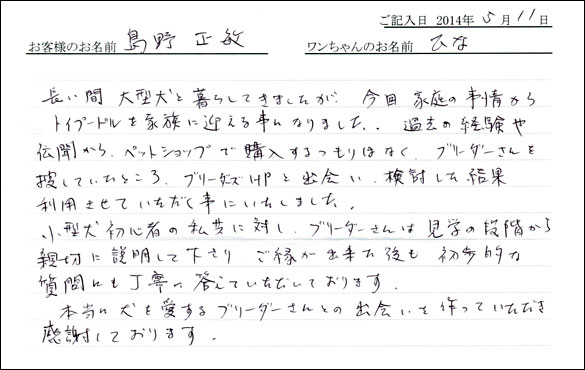 ご記入日 2014年 5月 11日
お客様のお名前 島野 正敏 ワンちゃんのお名前 ひな
長い間 大型犬と暮らしてきましたが、今回 家庭の事情から
トイプードルを家族に迎える事になりました。過去の経験や
伝聞から、ペットショップで購入するつもりはなく、ブリーダーさんを
捜していたところ、ブリーダーズHPと出会い、検討した結果
利用させていただく事にいたしました。
小型犬初心者の私共に対し、ブリーダーさんは見学の段階から
親切に説明して下さり、ご縁が出来た後も 初歩的な
質問にも丁寧に答えていただいております。
本当に犬を愛するブリーダーさんとの出会いを作っていただき
感謝しております。